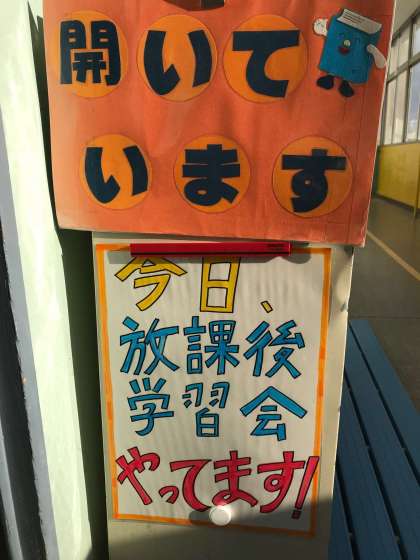 開いて
います
今日、
放課後
学習会
やってます!